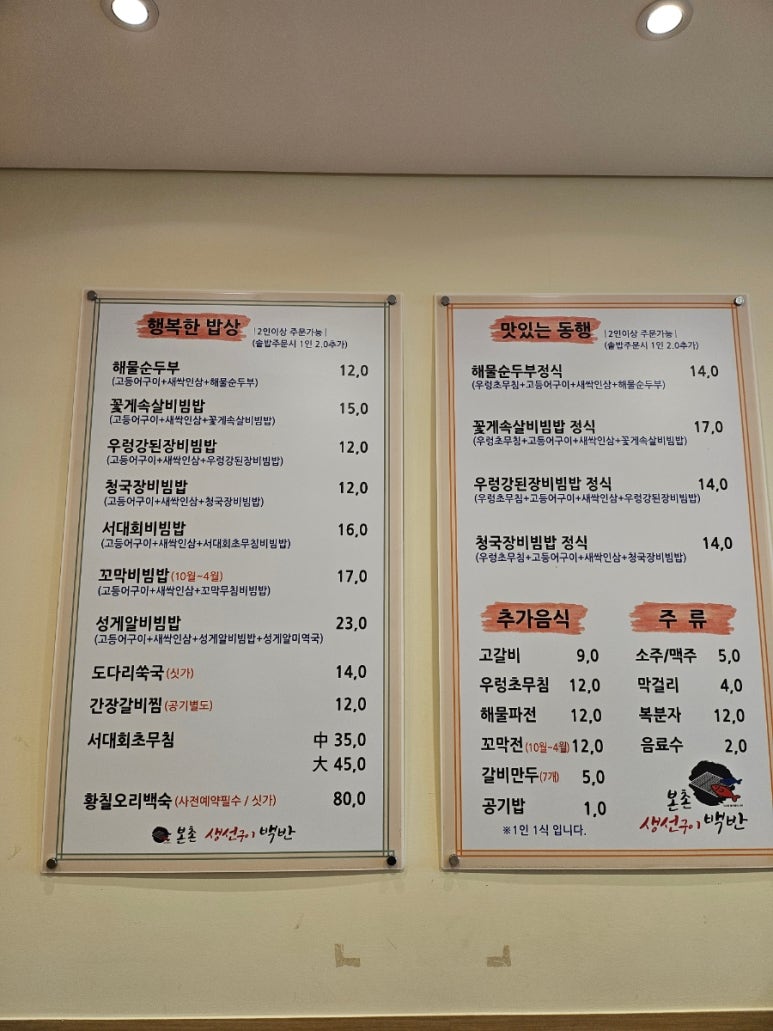 행복한 밥상
|2인이상 주문가능|
(솥밥주문시 1인 2.0추가)
해물순두부 12,0
(고등어구이+새싹인삼+해물순두부)
꽃게속살비빔밥 15,0
(고등어구이+새싹인삼+꽃게속살비빔밥)
우렁강된장비빔밥 12,0
(고등어구이+새싹인삼+우렁강된장비빔밥)
청국장비빔밥 12,0
(고등어구이+새싹인삼+청국장비빔밥)
서대회비빔밥 16,0
(고등어구이+새싹인삼+서대회초무침비빔밥)
꼬막비빔밥(10월~4월) 17,0
(고등어구이+새싹인삼+꼬막무침비빔밥)
성게알비빔밥 23,0
(고등어구이+새싹인삼+성게알비빔밥+성게알미역국)
도다리쑥국(싯가) 14,0
간장갈비찜(공기별도) 12,0
서대회초무침 中 35,0
大 45,0
황칠오리백숙(사전예약필수 / 싯가) 80,0
본촌 생선구이 백반
맛있는 동행
|2인이상 주문가능|
(솥밥주문시 1인 2.0추가)
해물순두부정식 14,0
(우렁초무침+고등어구이+새싹인삼+해물순두부)
꽃게속살비빔밥 정식 17,0
(우렁초무침+고등어구이+새싹인삼+꽃게속살비빔밥)
우렁강된장비빔밥 정식 14,0
(우렁초무침+고등어구이+새싹인삼+우렁강된장비빔밥)
청국장비빔밥 정식 14,0
(우렁초무침+고등어구이+새싹인삼+청국장비빔밥)
추가음식
고갈비 9,0
우렁초무침 12,0
해물파전 12,0
꼬막전(10월~4월) 12,0
갈비만두(7개) 5,0
공기밥 1,0
※1인 1식 입니다.
주 류
소주/맥주 5,0
막걸리 4,0
복분자 12,0
음료수 2,0
본촌
생선구이 백반